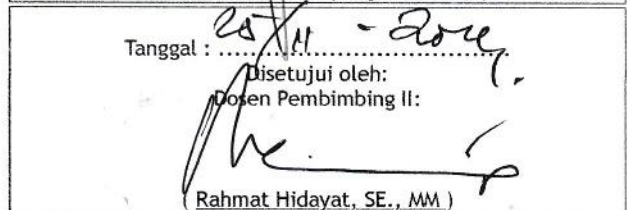 Tanggal : 25/11 - 2014
Disetujui oleh:
Dosen Pembimbing II:
( Rahmat Hidayat, SE., MM )